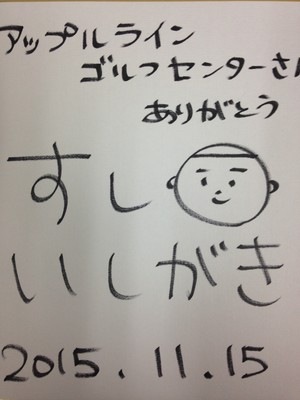 アップルライン
ゴルフセンターさん
ありがとう
すし
いしがき
2015.11.15